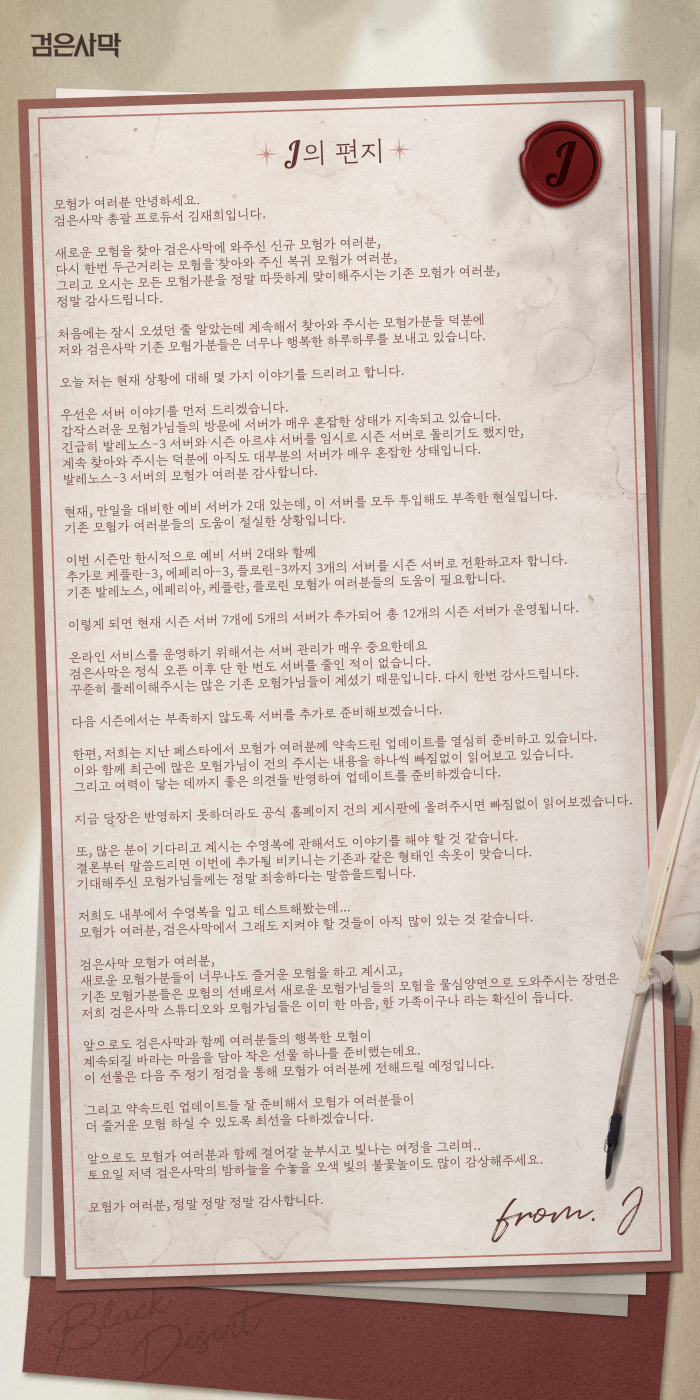 검은사막
J의 편지
J
모험가 여러분 안녕하세요.
검은사막 총괄 프로듀서 김재희입니다.
새로운 모험을 찾아 검은사막에 와주신 신규 모험가 여러분,
다시 한번 두근거리는 모험을 찾아와 주신 복귀 모험가 여러분,
그리고 오시는 모든 모험가분을 정말 따뜻하게 맞이해주시는 기존 모험가 여러분,
정말 감사드립니다.
처음에는 잠시 오셨던 줄 알았는데 계속해서 찾아와 주시는 모험가분들 덕분에
저와 검은사막 기존 모험가분들은 너무나 행복한 하루하루를 보내고 있습니다.
오늘 저는 현재 상황에 대해 몇 가지 이야기를 드리려고 합니다.
우선은 서버 이야기를 먼저 드리겠습니다.
갑작스러운 모험가님들의 방문에 서버가 매우 혼잡한 상태가 지속되고 있습니다.
긴급히 발레노스-3 서버와 시즌 아르샤 서버를 임시로 시즌 서버로 돌리기도 했지만,
계속 찾아와 주시는 덕분에 아직도 대부분의 서버가 매우 혼잡한 상태입니다.
발레노스-3 서버의 모험가 여러분 감사합니다.
현재, 만일을 대비한 예비 서버가 2대 있는데, 이 서버를 모두 투입해도 부족한 현실입니다.
기존 모험가 여러분들의 도움이 절실한 상황입니다.
이번 시즌만 한시적으로 예비 서버 2대와 함께
추가로 케플란-3, 에페리아-3, 플로린-3까지 3개의 서버를 시즌 서버로 전환하고자 합니다.
기존 발레노스, 에페리아, 케플란, 플로린 모험가 여러분들의 도움이 필요합니다.
이렇게 되면 현재 시즌 서버 7개에 5개의 서버가 추가되어 총 12개의 시즌 서버가 운영됩니다.
온라인 서비스를 운영하기 위해서는 서버 관리가 매우 중요한데요
검은사막은 정식 오픈 이후 단 한 번도 서버를 줄인 적이 없습니다.
꾸준히 플레이해주시는 많은 기존 모험가님들이 계셨기 때문입니다. 다시 한번 감사드립니다.
다음 시즌에서는 부족하지 않도록 서버를 추가로 준비해보겠습니다.
한편, 저희는 지난 페스타에서 모험가 여러분께 약속드린 업데이트를 열심히 준비하고 있습니다.
이와 함께 최근에 많은 모험가님이 건의 주시는 내용을 하나씩 빠짐없이 읽어보고 있습니다.
그리고 여력이 닿는 데까지 좋은 의견들 반영하여 업데이트를 준비하겠습니다.
지금 당장은 반영하지 못하더라도 공식 홈페이지 건의 게시판에 올려주시면 빠짐없이 읽어보겠습니다.
또, 많은 분이 기다리고 계시는 수영복에 관해서도 이야기를 해야 할 것 같습니다.
결론부터 말씀드리면 이번에 추가될 비키니는 기존과 같은 형태인 속옷이 맞습니다.
기대해주신 모험가님들께는 정말 죄송하다는 말씀을드립니다.
저희도 내부에서 수영복을 입고 테스트해봤는데...
모험가 여러분, 검은사막에서 그래도 지켜야 할 것들이 아직 많이 있는 것 같습니다.
검은사막 모험가 여러분,
새로운 모험가분들이 너무나도 즐거운 모험을 하고 계시고,
기존 모험가분들은 모험의 선배로서 새로운 모험가님들의 모험을 물심양면으로 도와주시는 장면은
저희 검은사막 스튜디오와 모험가님들은 이미 한 마음, 한 가족이구나 라는 확신이 듭니다.
앞으로도 검은사막과 함께 여러분들의 행복한 모험이
계속되길 바라는 마음을 담아 작은 선물 하나를 준비했는데요.
이 선물은 다음 주 정기 점검을 통해 모험가 여러분께 전해드릴 예정입니다.
그리고 약속드린 업데이트들 잘 준비해서 모험가 여러분들이
더 즐거운 모험 하실 수 있도록 최선을 다하겠습니다.
앞으로도 모험가 여러분과 함께 걸어갈 눈부시고 빛나는 여정을 그리며..
토요일 저녁 검은사막의 밤하늘을 수놓을 오색 빛의 불꽃놀이도 많이 감상해주세요.
모험가 여러분, 정말 정말 정말 감사합니다.
from. J
Black
Desert